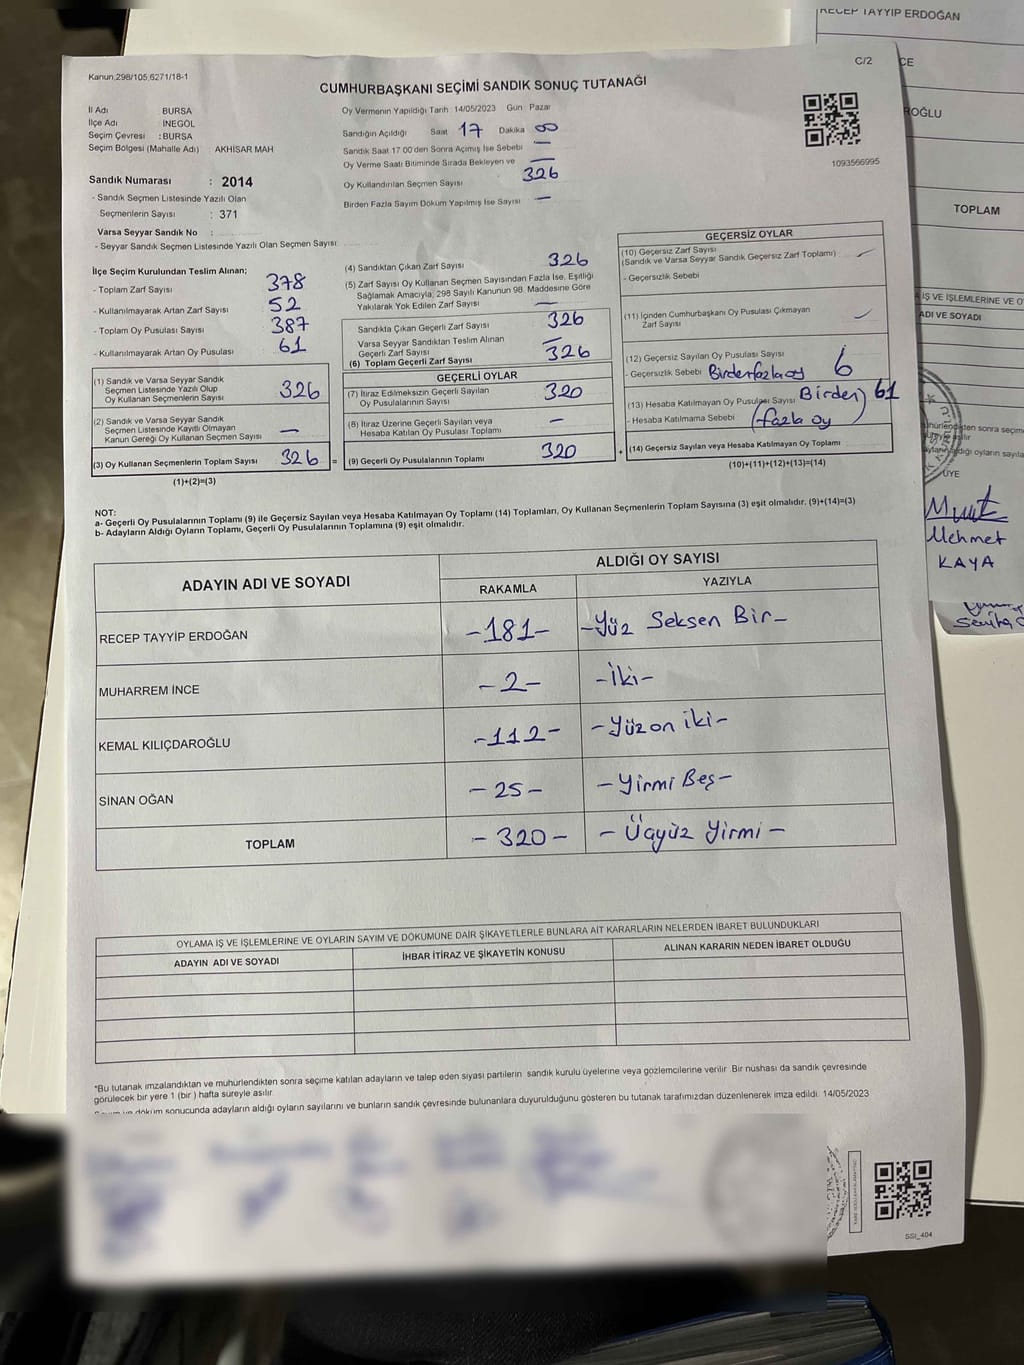 RECEP TAYYİP ERDOĞAN
Kanun.298/105,6271/18-1
C/2
CE
CUMHURBAŞKANI SEÇİMİ SANDIK SONUÇ TUTANAĞI
ROĞLU
İl Adı BURSA
İlçe Adı : İNEGÖL
Seçim Çevresi : BURSA
Seçim Bölgesi (Mahalle Adı) AKHİSAR MAH
Oy Vermenin Yapıldığı Tarih : 14/05/2023 Gün : Pazar
Sandığın Açıldığı Saat 17 Dakika 00
Sandık Saat 17 00'den Sonra Açımış İse Sebebi —
Oy Verme Saati Bitiminde Sırada Bekleyen ve —
Oy Kullandırılan Seçmen Sayısı 326
Birden Fazla Sayım Döküm Yapılmış İse Sayısı —
1093566995
Sandık Numarası : 2014
- Sandık Seçmen Listesinde Yazılı Olan
Seçmenlerin Sayısı : 371
Varsa Seyyar Sandık No :
- Seyyar Sandık Seçmen Listesinde Yazılı Olan Seçmen Sayısı
TOPLAM
İlçe Seçim Kurulundan Teslim Alınan;
- Toplam Zarf Sayısı 378
- Kullanılmayarak Artan Zarf Sayısı 52
- Toplam Oy Pusulası Sayısı 387
- Kullanılmayarak Artan Oy Pusulası 61
(1) Sandık ve Varsa Seyyar Sandık
Seçmen Listesinde Yazılı Olup
Oy Kullanan Seçmenlerin Sayısı 326
(2) Sandık ve Varsa Seyyar Sandık
Seçmen Listesinde Kayıtlı Olmayan
Kanun Gereği Oy Kullanan Seçmen Sayısı —
(3) Oy Kullanan Seçmenlerin Toplam Sayısı 326
(1)+(2)=(3)
(4) Sandıktan Çıkan Zarf Sayısı 326
(5) Zarf Sayısı Oy Kullanan Seçmen Sayısından Fazla İse, Eşitliği
Sağlamak Amacıyla, 298 Sayılı Kanunun 98. Maddesine Göre
Yakılarak Yok Edilen Zarf Sayısı —
Sandıkla Çıkan Geçerli Zarf Sayısı 326
Varsa Seyyar Sandıktan Teslim Alınan
Geçerli Zarf Sayısı —
(6) Toplam Geçerli Zarf Sayısı 326
GEÇERLİ OYLAR
(7) İtiraz Edilmeksizin Geçerli Sayılan
Oy Pusulalarının Sayısı 320
(8) İtiraz Üzerine Geçerli Sayılan veya
Hesaba Katılan Oy Pusulası Toplamı —
= (9) Geçerli Oy Pusulalarının Toplamı 320
GEÇERSİZ OYLAR
(10) Geçersiz Zarf Sayısı
(Sandık ve Varsa Seyyar Sandık Geçersiz Zarf Toplamı) —
- Geçersizlik Sebebi
(11) İçinden Cumhurbaşkanı Oy Pusulası Çıkmayan
Zarf Sayısı —
(12) Geçersiz Sayılan Oy Pusulası Sayısı 6
- Geçersizlik Sebebi Birden fazla oy
(13) Hesaba Katılmayan Oy Pusulası Sayısı Birden 61
- Hesaba Katılmama Sebebi (fazla oy)
+ (14) Geçersiz Sayılan veya Hesaba Katılmayan Oy Toplamı
(10)+(11)+(12)+(13)=(14)
NOT:
a- Geçerli Oy Pusulalarının Toplamı (9) ile Geçersiz Sayılan veya Hesaba Katılmayan Oy Toplamı (14) Toplamları, Oy Kullanan Seçmenlerin Toplam Sayısına (3) eşit olmalıdır. (9)+(14)=(3)
b- Adayların Aldığı Oyların Toplamı, Geçerli Oy Pusulalarının Toplamına (9) eşit olmalıdır.
ADAYIN ADI VE SOYADI
ALDIĞI OY SAYISI
RAKAMLA YAZIYLA
RECEP TAYYİP ERDOĞAN -181- -Yüz Seksen Bir-
MUHARREM İNCE -2- -İki-
KEMAL KILIÇDAROĞLU -112- -Yüz on iki-
SİNAN OĞAN -25- -Yirmi Beş-
TOPLAM -320- -Üçyüz Yirmi-
ADI VE SOYADI
ÜYE
Mehmet
KAYA
OYLAMA İŞ VE İŞLEMLERİNE VE OYLARIN SAYIM VE DÖKÜMÜNE DAİR ŞİKAYETLERLE BUNLARA AİT KARARLARIN NELERDEN İBARET BULUNDUKLARI
ADAYIN ADI VE SOYADI İHBAR İTİRAZ VE ŞİKAYETİN KONUSU ALINAN KARARIN NEDEN İBARET OLDUĞU
*Bu tutanak imzalandıktan ve mühürlendikten sonra seçime katılan adayların ve talep eden siyasi partilerin sandık kurulu üyelerine veya gözlemcilerine verilir. Bir nüshası da sandık çevresinde
görülecek bir yere 1 (bir) hafta süreyle asılır.
döküm sonucunda adayların aldığı oyların sayılarını ve bunların sandık çevresinde bulunanlara duyurulduğunu gösteren bu tutanak tarafımızdan düzenlenerek imza edildi. 14/05/2023
SSI_404